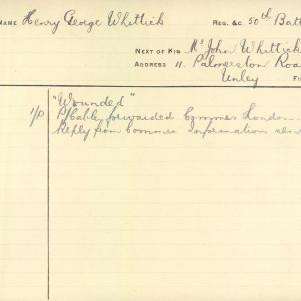 NAME Henry George Whittick REG. &C. 50th Bat
NEXT OF KIN Mr John Whittick
ADDRESS 11. Palmerston Roa
Unley FI
"Wounded"
forwarded London
Reply from Information